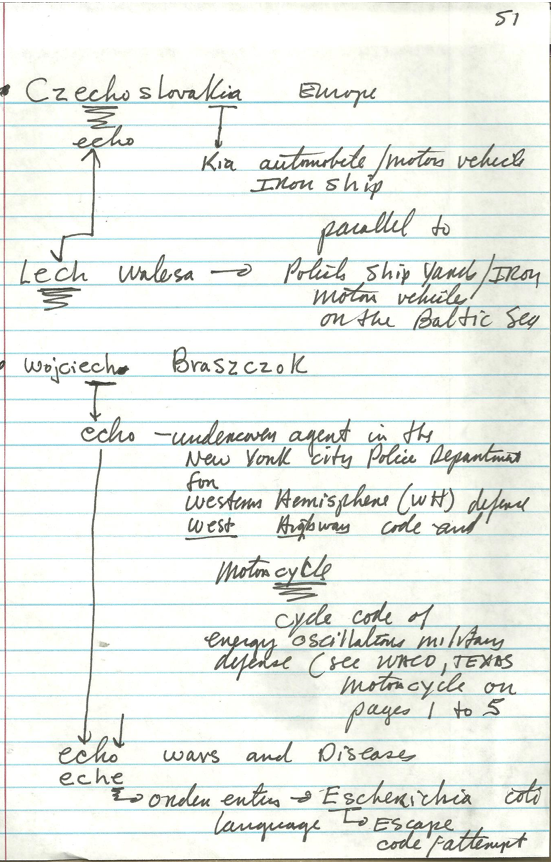 51
Czechoslovakia Europe
echo
Kia automobile/motor vehicle
Iron ship
parallel to
Lech Walesa → Polish Ship Yards/Iron
motor vehicles
on the Baltic Sea
Wojciech Braszczok
echo - undercover agent in the
New York City Police Department
for
Western Hemisphere (WH) defense
West Highway code and
Motorcycle
cycle code of
energy oscillations military
defense (see WACO, TEXAS
Motorcycle on
pages 1 to 5
echo wars and Diseases
eche
→ order enters → Escherichia coli
language → Escape
code/attempt